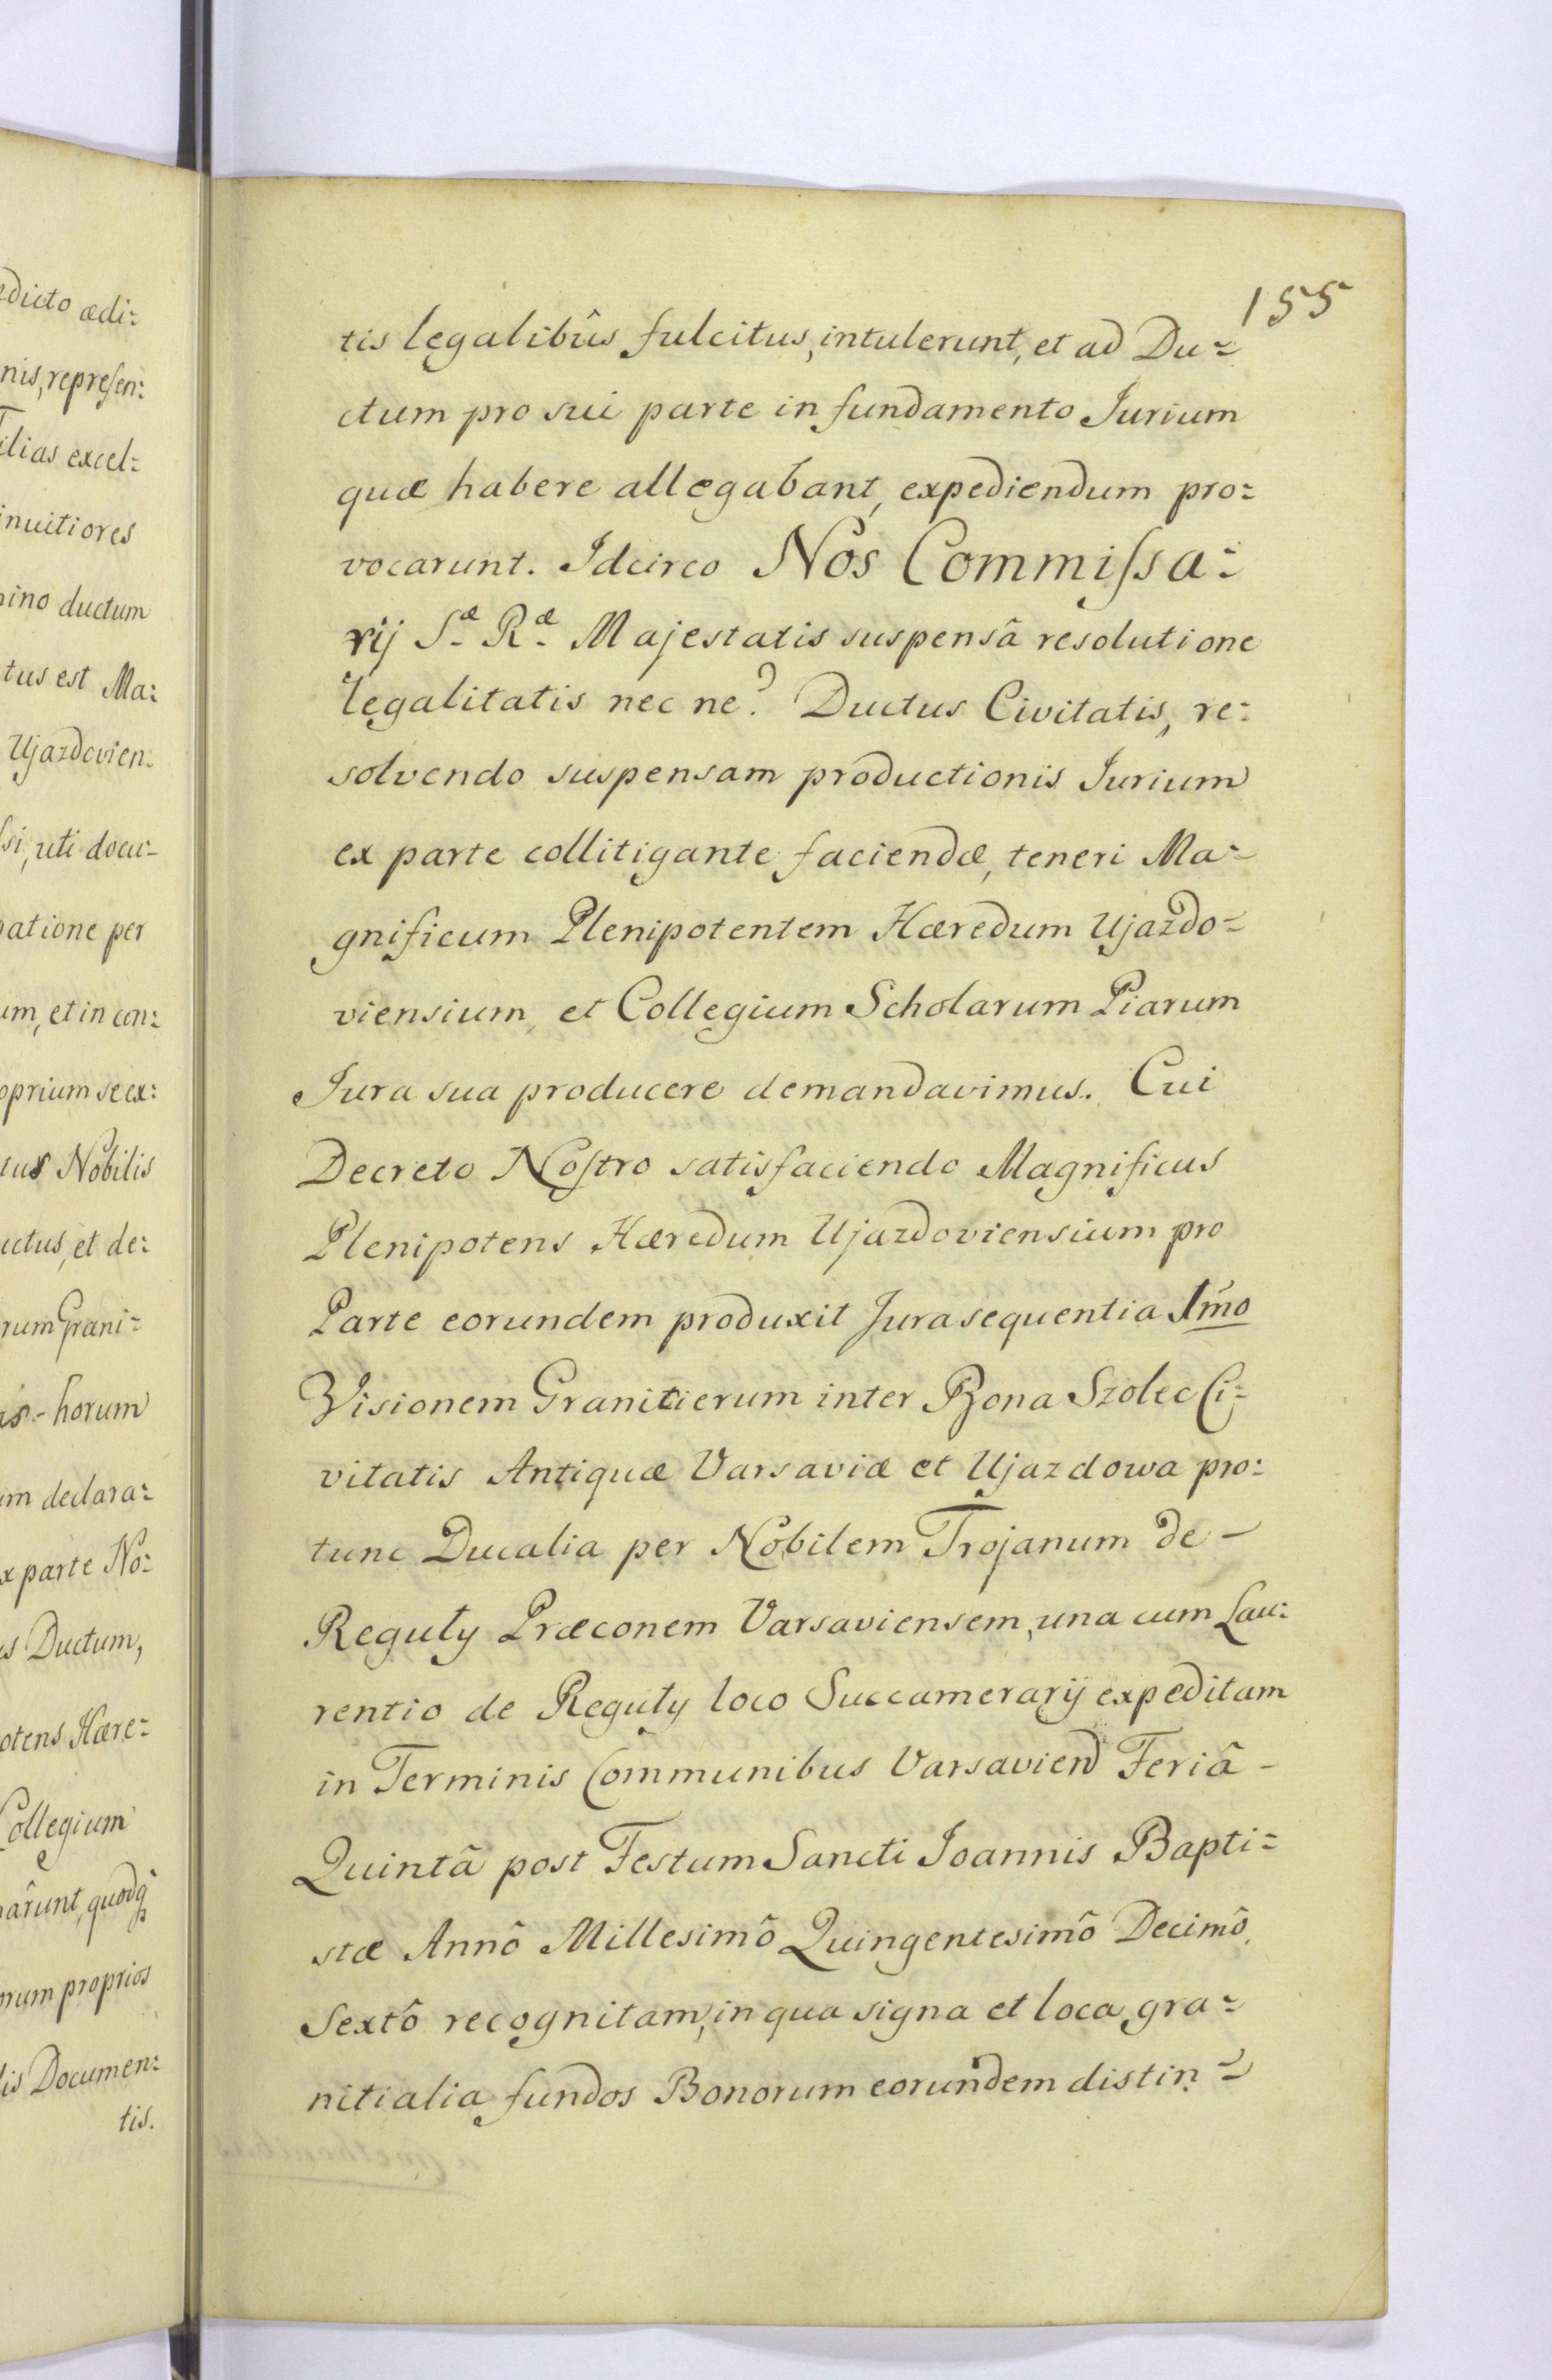 155
tis legalibûs fulcitus, intulerunt, et ad Du=
ctum pro sui parte in fundamento Jurium
quæ habere allegabant, expediendum pro=
vocarunt. Idcirco Nos Commiſsa=
rij Sæ Ræ Majestatis suspensâ resolutione
legalitatis nec ne? Ductus Civitatis, re=
solvendo suspensam productionis Jurium
ex parte collitigante faciendæ, teneri Ma=
gnificum Plenipotentem Hæredum Ujazdo=
viensium, et Collegium Scholarum Piarum
Jura sua producere demandavimus. Cui
Decreto Noſtro satisfaciendo Magnificus
Plenipotens Hæredum Ujazdoviensium pro
Parte eorundem produxit Jura sequentia 1mo
Visionem Granicierum inter Bona Szolec Ci=
vitatis Antiquæ Varsaviæ et Ujazdowa pro=
tunc Ducalia per Nobilem Trojanum de -
Reguły Præconem Varsaviensem, una cum Lau=
rentio de Reguły loco Succamerarij expeditam
in Terminis Communibus Varsavien Feriâ -
Quintâ post Festum Sancti Joannis Bapti=
stæ Annô Millesimô Quingentesimô Decimô
Sextô recognitam, in qua signa et loca gra=
nitialia fundos Bonorum eorundem distin=
ædi=
nis, repreſen=
excel=
ductum
tus est Ma=
Ujazdovien=
uti docu=
per
et in con=
se ex=
Nobilis
et de=
Grani=
horum
declara=
parte No=
Ductum,
Hære=
Collegium
quodq
proprios
Documen=
tis.